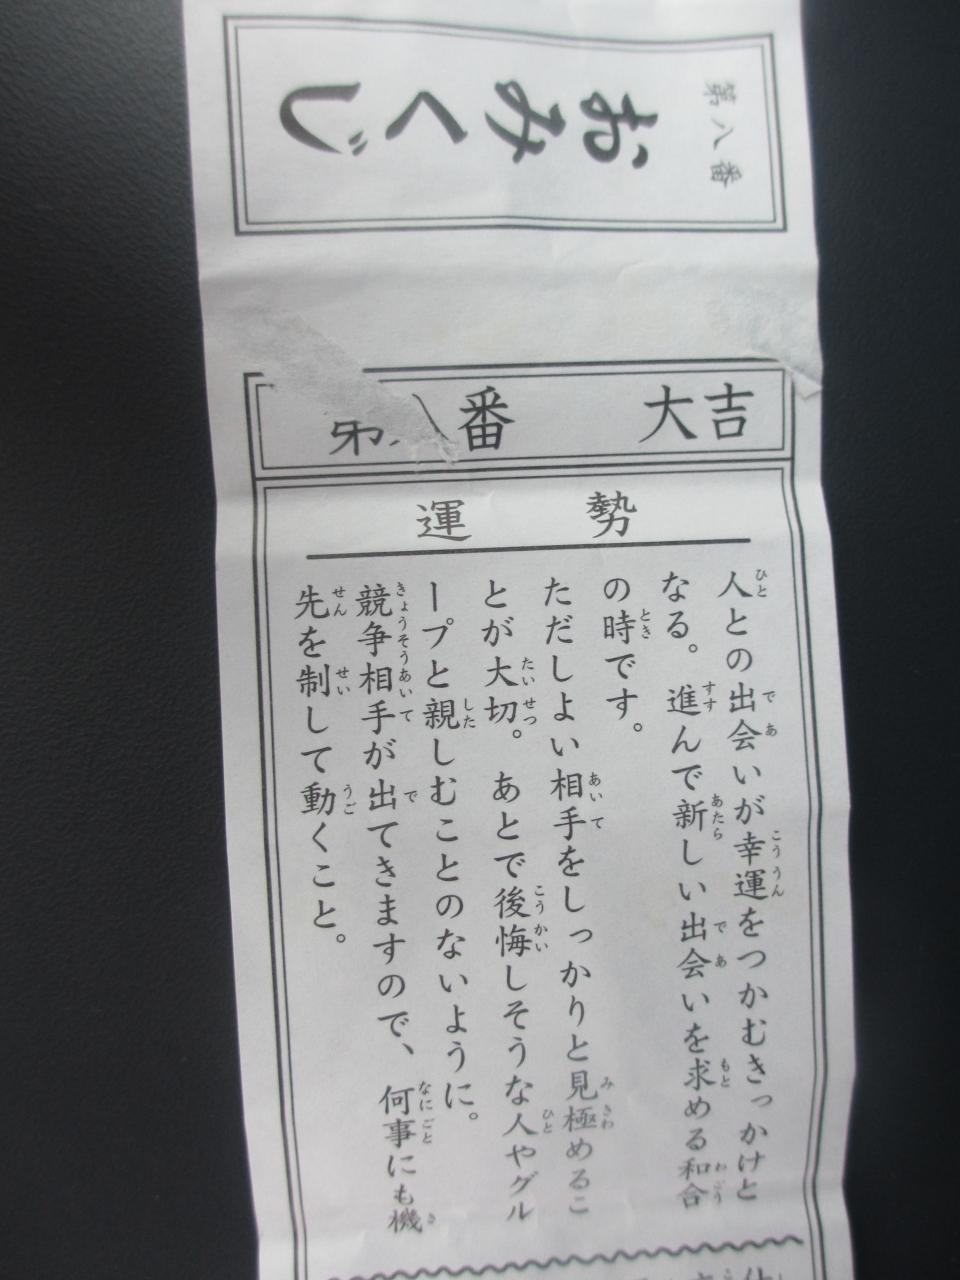 第八番
おみくじ
番 大吉
運勢
人との出会いが幸運をつかむきっかけと
なる。進んで新しい出会いを求める和合
の時です。
ただしよい相手をしっかりと見極めるこ
とが大切。あとで後悔しそうな人やグル
ープと親しむことのないように。
競争相手が出てきますので、何事にも機
先を制して動くこと。